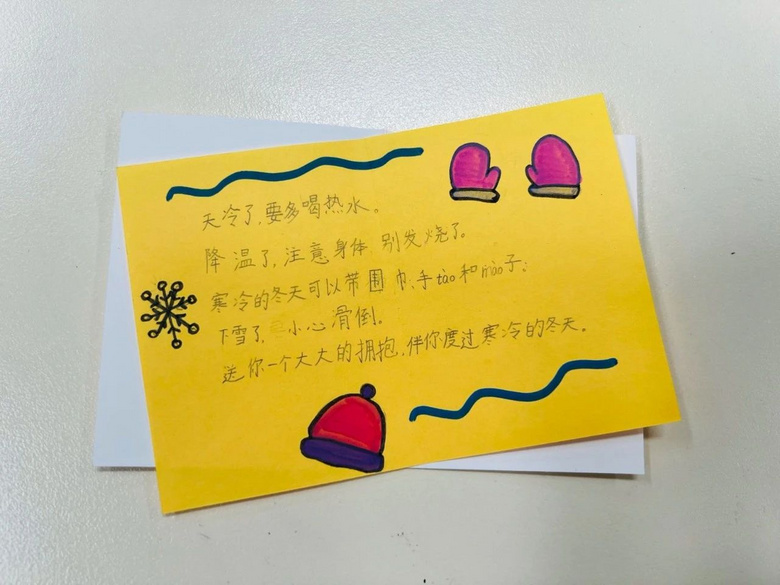 天冷了,要多喝热水。
降温了,注意身体 别发烧了。
寒冷的冬天可以带围巾、手tào和mào子;
下雪了,小心滑倒。
送你一个大大的拥抱,伴你度过寒冷的冬天。